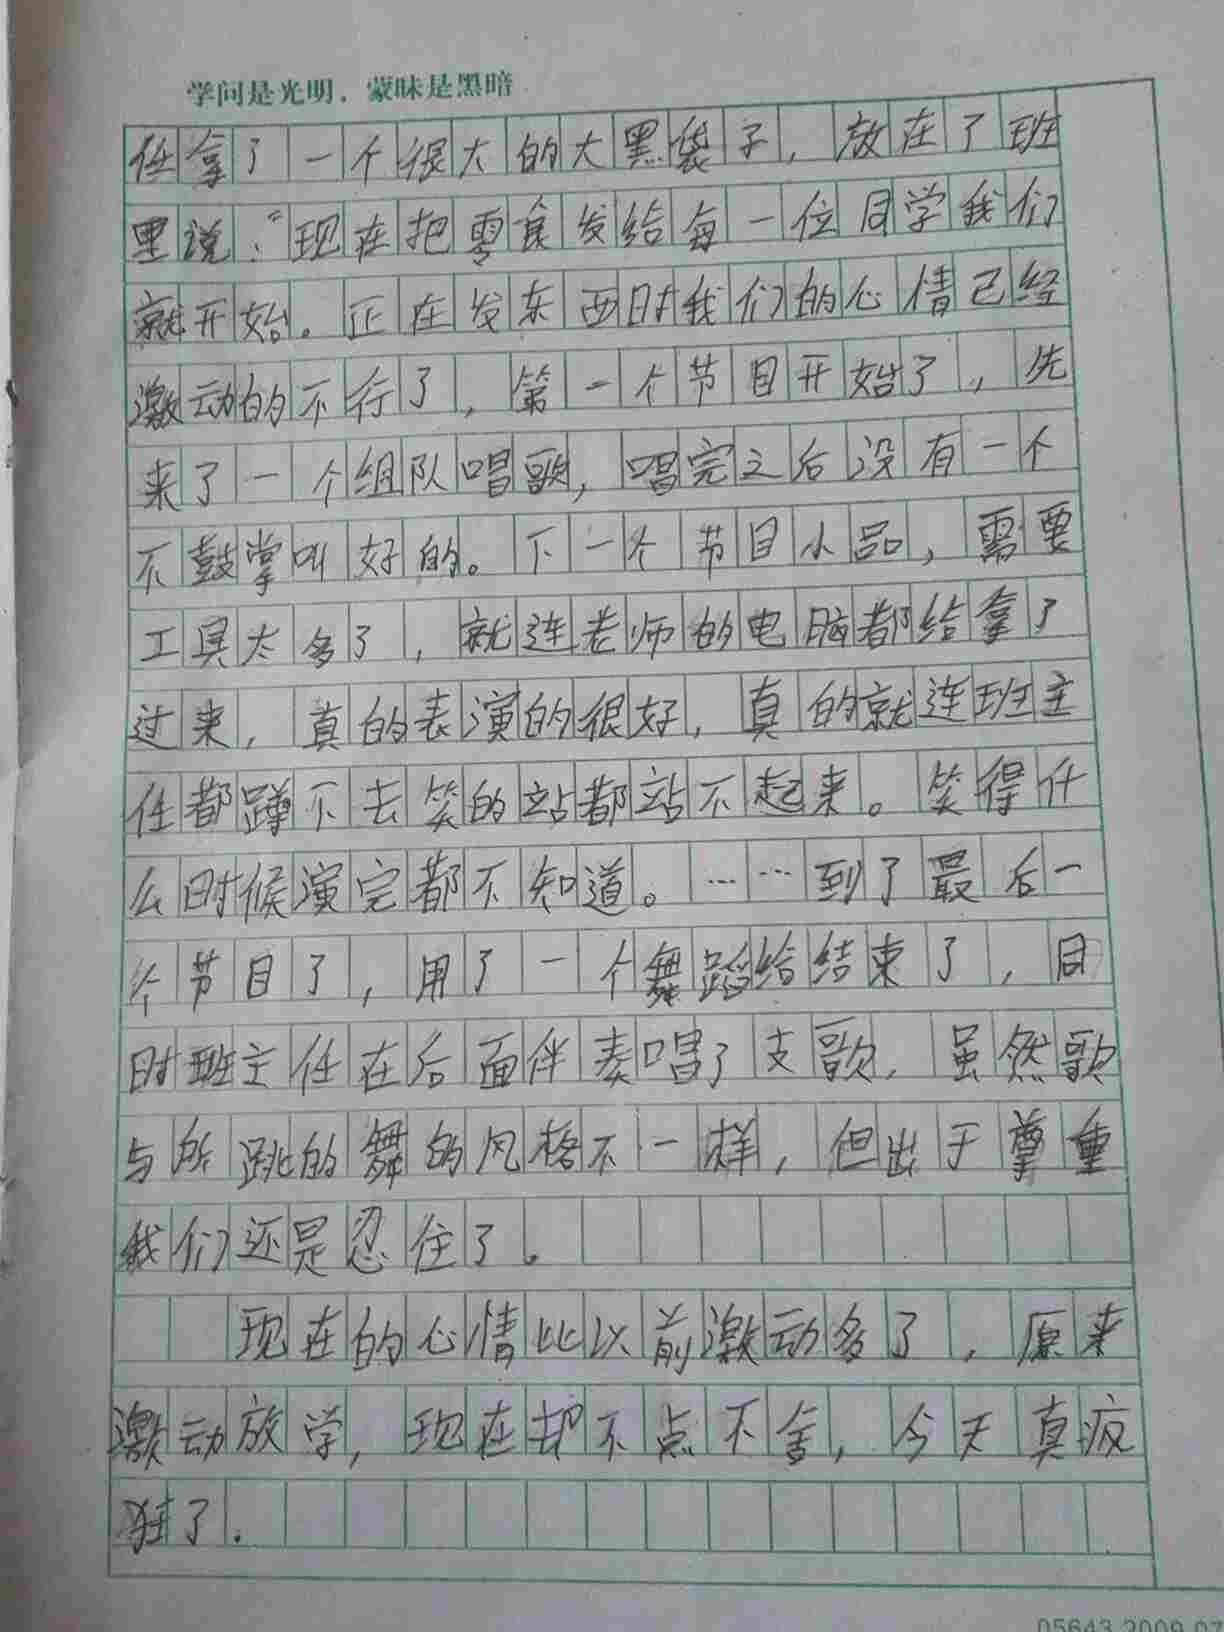 学问是光明，蒙昧是黑暗
任拿了一个很大的大黑袋子，放在了班
里说：“现在把零食发给每一位同学我们
就开始。正在发东西时我们的心情已经
激动的不行了，第一个节目开始了，先
来了一个组队唱歌，唱完之后没有一个
不鼓掌叫好的。下一个节目小品，需要
工具太多了，就连老师的电脑都给拿了
过来，真的表演的很好，真的就连班主
任都蹲下去笑的站都站不起来。笑得什
么时候演完都不知道。……到了最后一
个节目了，用了一个舞蹈给结束了，同
时班主任在后面伴奏唱了支歌，虽然歌
与所跳的舞的风格不一样，但出于尊重
我们还是忍住了。
现在的心情比以前激动多了，原来
激动放学，现在却不点不舍，今天真疯
狂了.
05643 2009.07